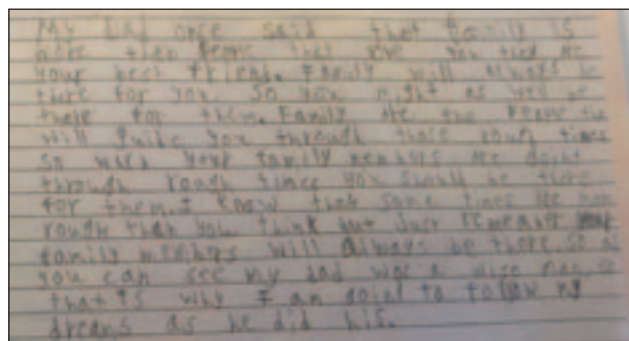 My Dad once said that family is
more than People that love you they are
your best friend. Family will always be
there for you. So you might as well be
there for them. Family are the People that
will guide you through those rough times
so when your family members are going
through rough times you should be there
for them. I know that some times are more
rough than you think but Just remember your
family members will always be there. So as
you can see my dad was a wise man, so
that is why I am going to follow my
dreams as he did his.